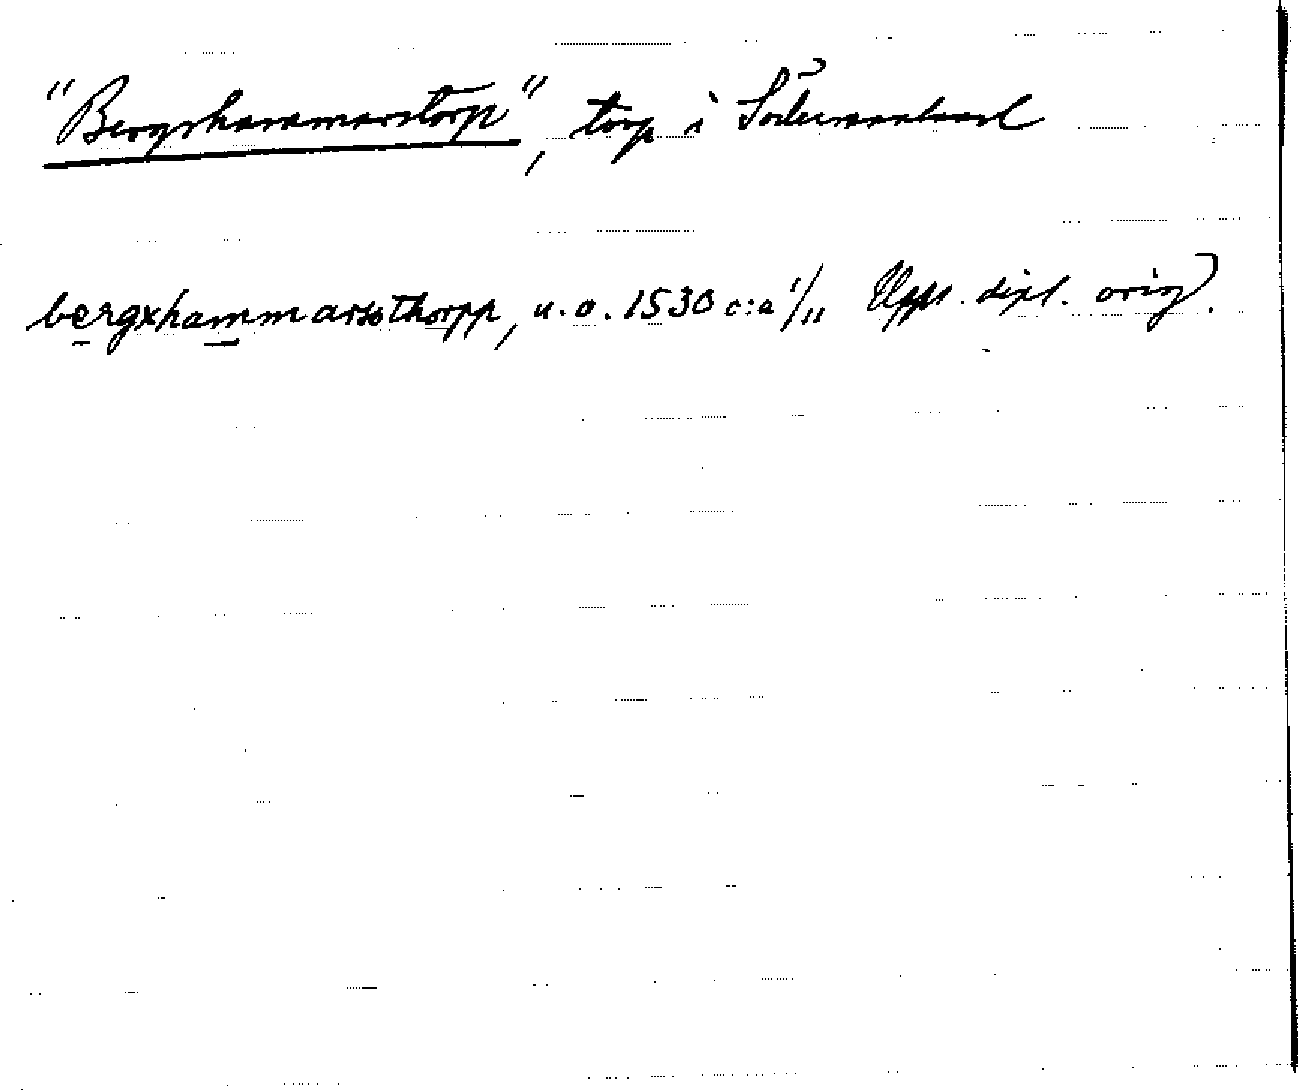 "Bergshammarstorp", torp i Södermanland
bergxhammarssthorpp, u.o. 1530 c:a 1/11 Upps. dipl. orig.